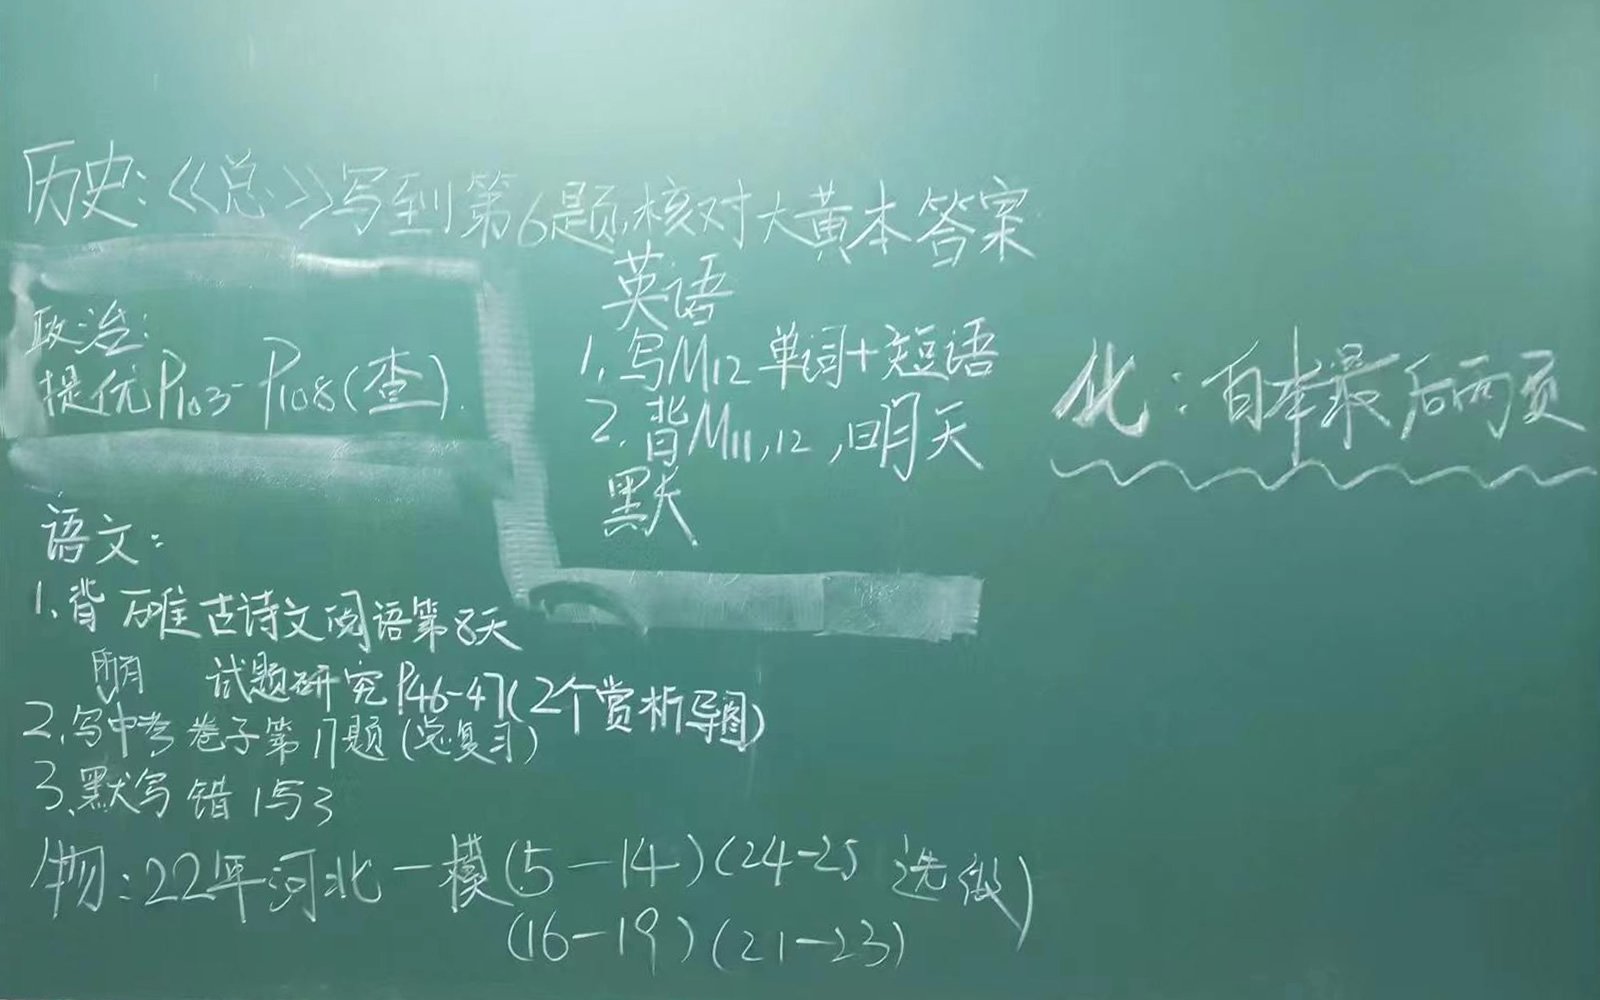 历史:《总》写到第6题,核对大黄本答案
政治:
提优P103-P108(查).
英语
1.写M12单词+短语
2.背M11,12,明天
默
化:白本最后两页
语文:
1.背 万唯古诗文阅语第8天
所有 试题研究P46-47(2个赏析导图)
2.写中考卷子第17题(总复习)
3.默写错1写3
物:22年河北一模(5-14)(24-25 选做)
(16-19)(21-23)